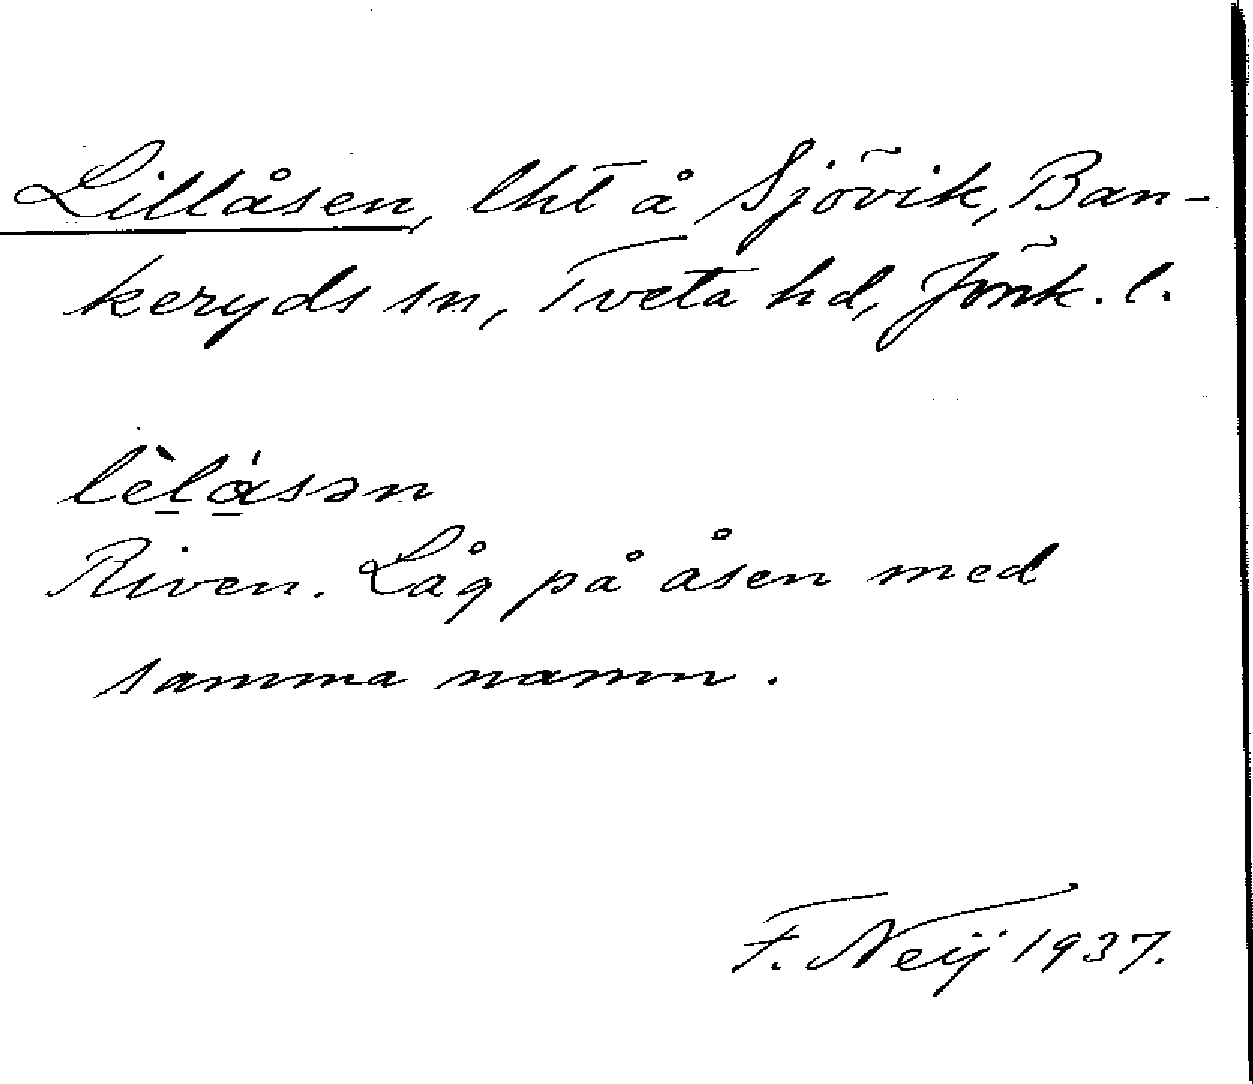 Lillåsen, lht å Sjövik, Ban-
keryds sn, Tveta hd, Jönk. l.
lèl̠ǻ̠sən
Riven. Låg på åsen med
samma namn.
F. Neij 1937.